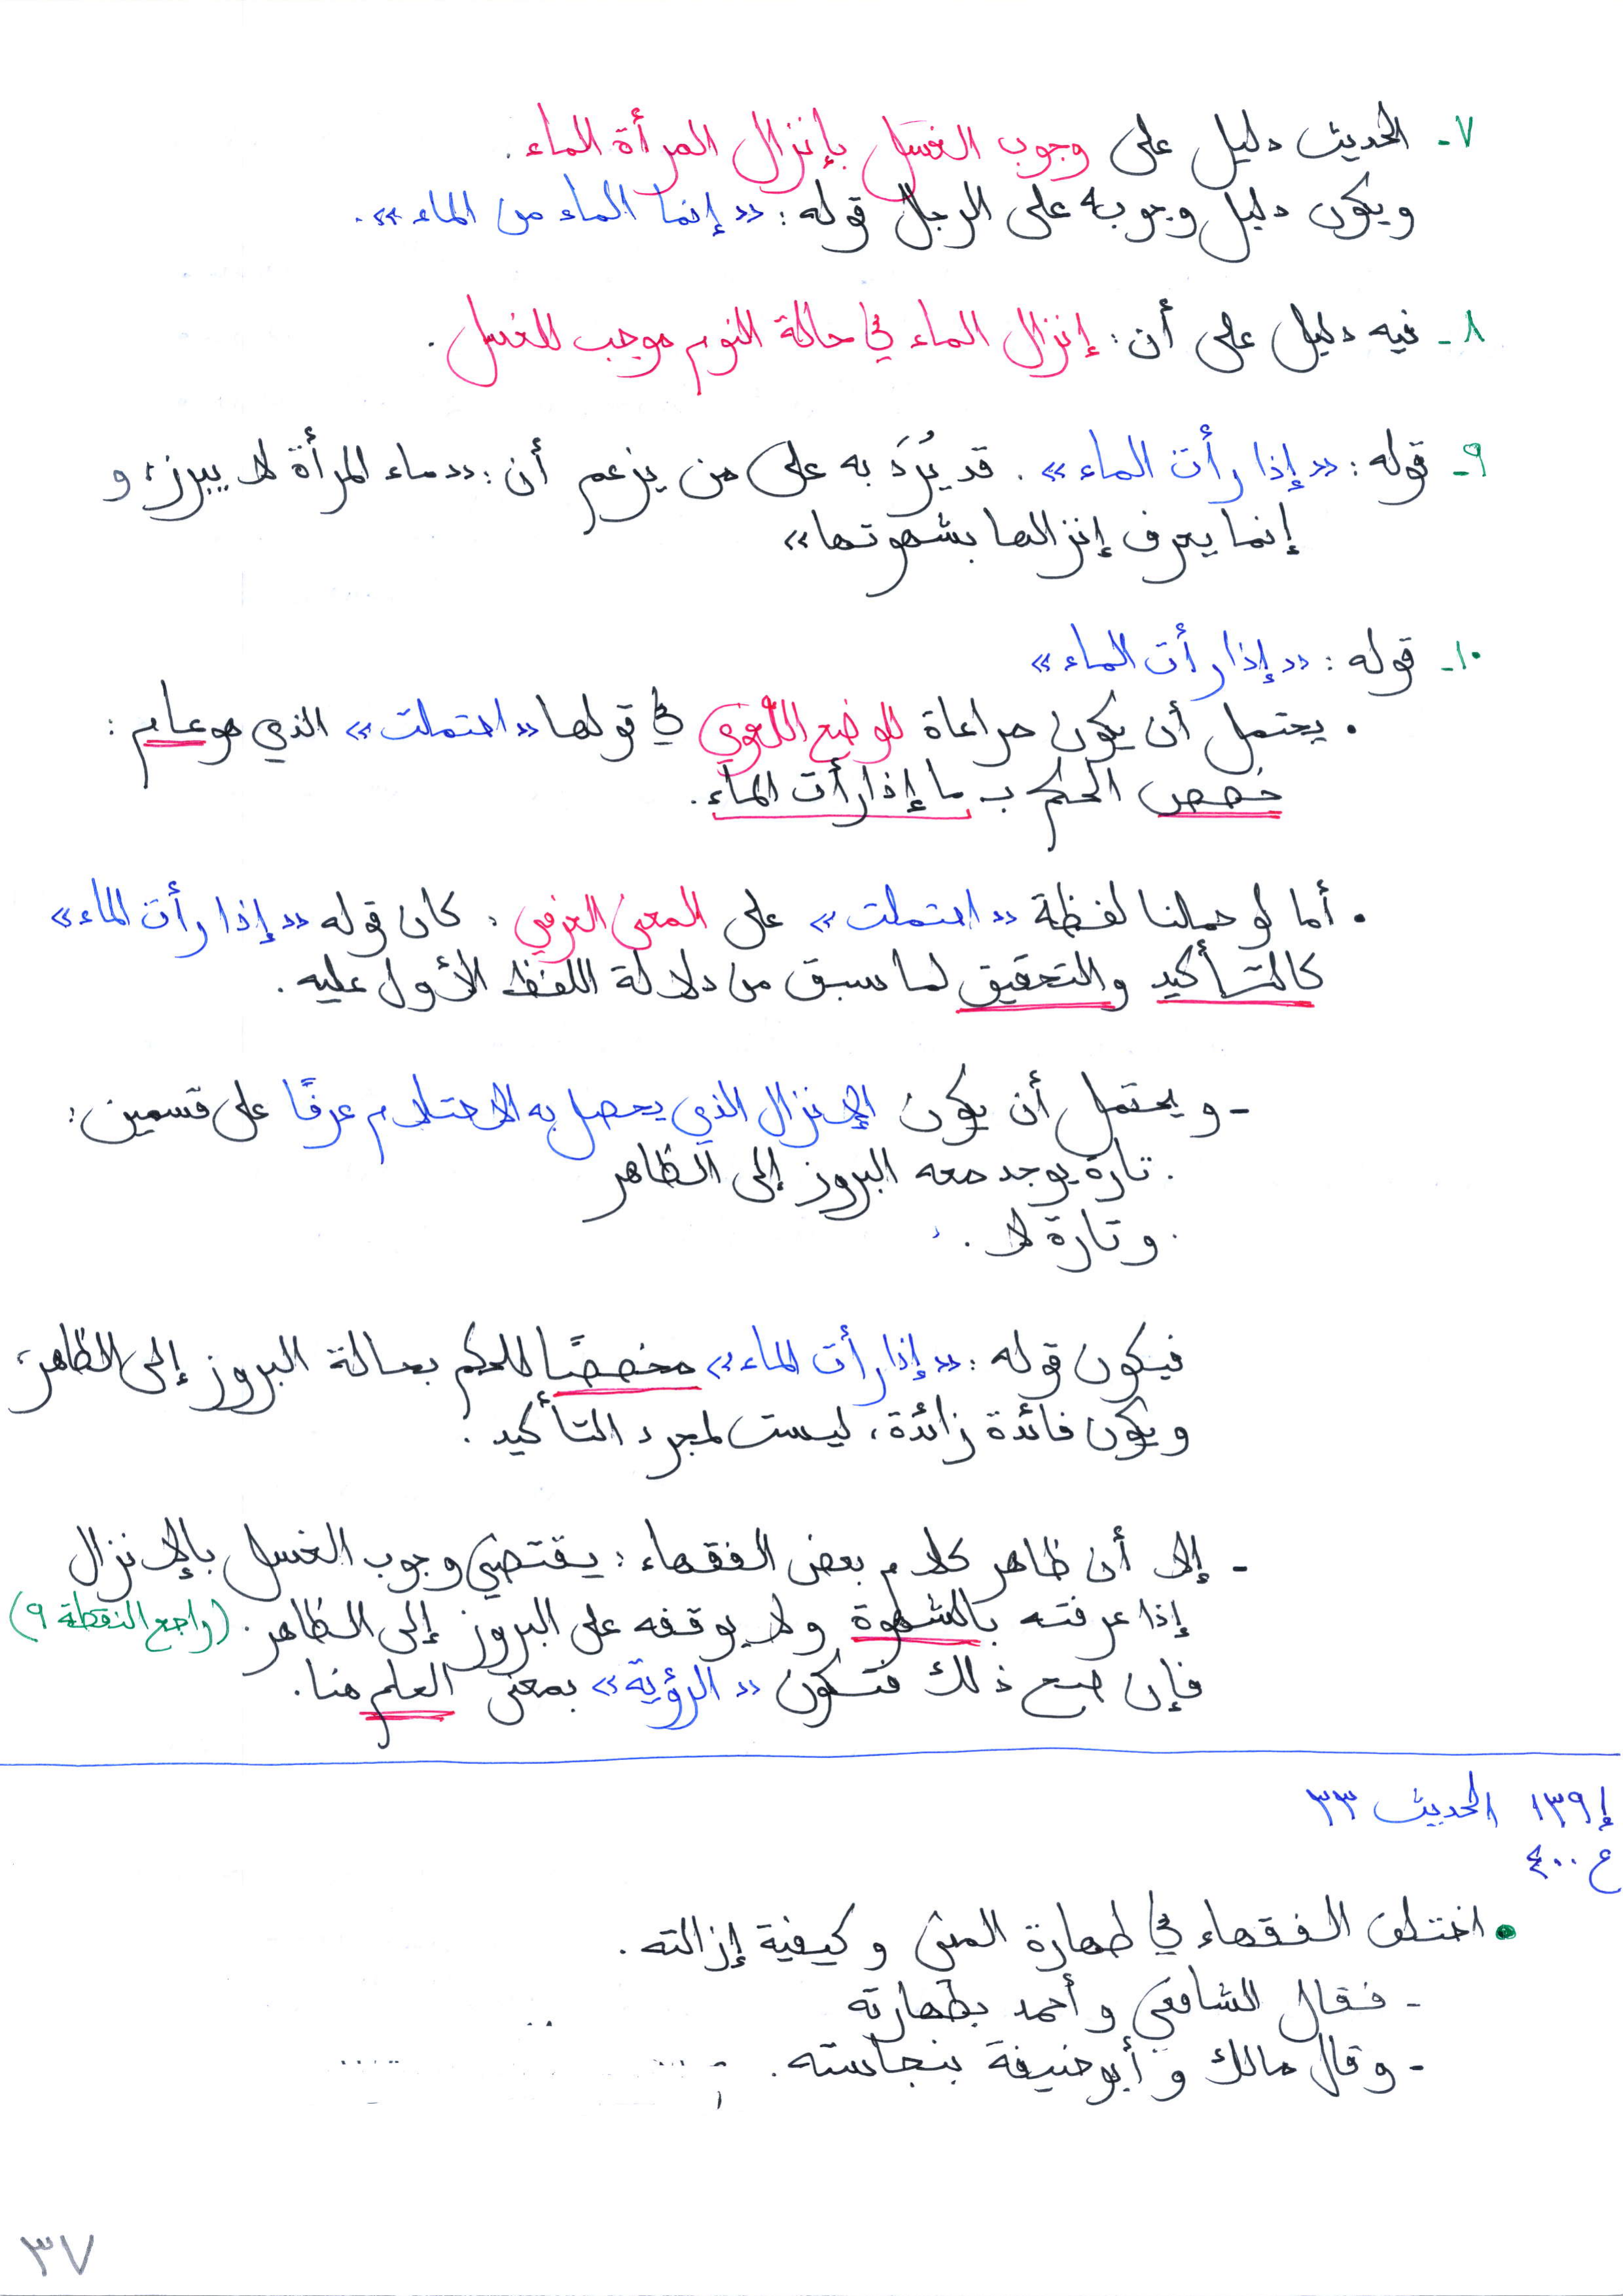 ٧- الحديث دليل على وجوب الغسل بإنزال المرأة الماء.
ويكون دليل وجوبه على الرجال قوله: «إنما الماء من الماء».
٨- فيه دليل على أن: إنزال الماء في حالة النوم موجب للغسل.
٩- قوله: «إذا رأت الماء». قد يُرَد به على من يزعم أن: «ماء المرأة لا يبرز، و
إنما يعرف إنزالها بشهوتها»
١٠- قوله: «إذا رأت الماء»
. يحتمل أن يكون مراعاة للوضع اللُّغوي في قولها «احتملت» الذي هو عام:
خصص الحكم بـ ما إذا رأت الماء.
. أما لو حملنا لفظة «احتملت» على المعنى العرفي: كان قوله «إذا رأت الماء»
كالتأكيد والتحقيق لما سبق من دلالة اللفظ الأول عليه.
- ويحتمل أن يكون الإنزال الذي يحصل به الاحتلام عرفًا على قسمين:
. تارة يوجد معه البروز إلى الظاهر
. وتارة لا.
فيكون قوله: «إذا رأت الماء» مخصصًا للحكم بحالة البروز إلى الظاهر،
ويكون فائدة زائدة، ليست لمجرد التأكيد.
- إلا أن ظاهر كلام بعض الفقهاء: يقتضي وجوب الغسل بالإنزال
إذا عرفته بالشهوة ولا يوقفه على البروز إلى الظاهر. (راجع النقطة ٩)
فإن صح ذلك فتكون «الرؤية» بمعنى العلم هنا.
إ ١٣٩ الحديث ٣٣
ع ٤٠٠
• اختلف الفقهاء في طهارة المني وكيفية إزالته.
- فقال الشافعي وأحمد بطهارته
- وقال مالك وأبو حنيفة بنجاسته.
٣٧